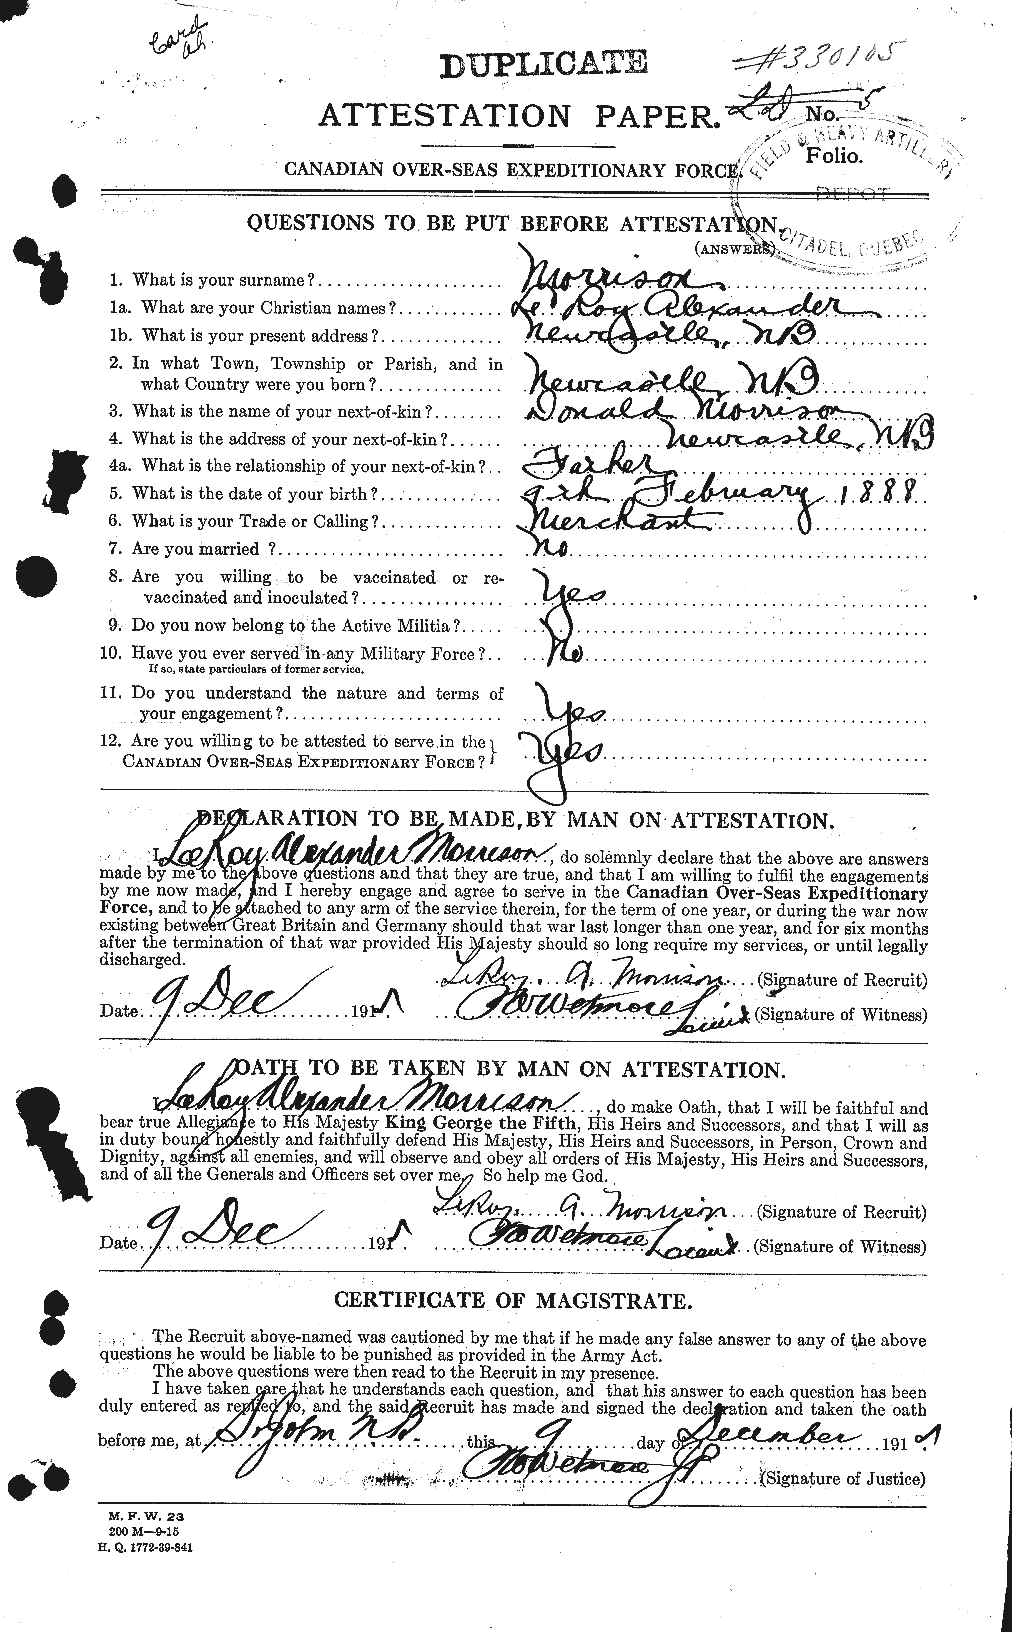 Card
DUPLICATE
#330105
ATTESTATION PAPER.
No. 5
Folio.
FIELD & HEAVY ARTILLERY
DEPOT
CITADEL, QUEBEC
CANADIAN OVER-SEAS EXPEDITIONARY FORCE.
QUESTIONS TO BE PUT BEFORE ATTESTATION.
(ANSWERS).
1. What is your surname? Morrison
1a. What are your Christian names? Le Roy Alexander
1b. What is your present address? Newcastle, NB
2. In what Town, Township or Parish, and in
what Country were you born? Newcastle, NB
3. What is the name of your next-of-kin? Donald Morrison
4. What is the address of your next-of-kin? Newcastle, NB
4a. What is the relationship of your next-of-kin? Father
5. What is the date of your birth? 9th February 1888
6. What is your Trade or Calling? Merchant
7. Are you married ? No
8. Are you willing to be vaccinated or re-
vaccinated and inoculated? Yes
9. Do you now belong to the Active Militia?
10. Have you ever served in any Military Force? No
If so, state particulars of former service.
11. Do you understand the nature and terms of
your engagement? Yes
12. Are you willing to be attested to serve in the
CANADIAN OVER-SEAS EXPEDITIONARY FORCE? Yes
DECLARATION TO BE MADE BY MAN ON ATTESTATION.
I, LeRoy Alexander Morrison, do solemnly declare that the above are answers
made by me to the above questions and that they are true, and that I am willing to fulfil the engagements
by me now made, and I hereby engage and agree to serve in the Canadian Over-Seas Expeditionary
Force, and to be attached to any arm of the service therein, for the term of one year, or during the war now
existing between Great Britain and Germany should that war last longer than one year, and for six months
after the termination of that war provided His Majesty should so long require my services, or until legally
discharged.
LeRoy A. Morrison (Signature of Recruit)
Date 9 Dec 191 Wetmore Lieut (Signature of Witness)
OATH TO BE TAKEN BY MAN ON ATTESTATION.
I, LeRoy Alexander Morrison, do make Oath, that I will be faithful and
bear true Allegiance to His Majesty King George the Fifth, His Heirs and Successors, and that I will as
in duty bound honestly and faithfully defend His Majesty, His Heirs and Successors, in Person, Crown and
Dignity, against all enemies, and will observe and obey all orders of His Majesty, His Heirs and Successors,
and of all the Generals and Officers set over me. So help me God.
LeRoy A. Morrison (Signature of Recruit)
Date 9 Dec 191 Wetmore Lieut (Signature of Witness)
CERTIFICATE OF MAGISTRATE.
The Recruit above-named was cautioned by me that if he made any false answer to any of the above
questions he would be liable to be punished as provided in the Army Act.
The above questions were then read to the Recruit in my presence.
I have taken care that he understands each question, and that his answer to each question has been
duly entered as replied to, and the said Recruit has made and signed the declaration and taken the oath
before me, at St John NB this 9 day of December 191
Wetmore JP (Signature of Justice)
M. F. W. 23
200 M—9-15
H. Q. 1772-39-841